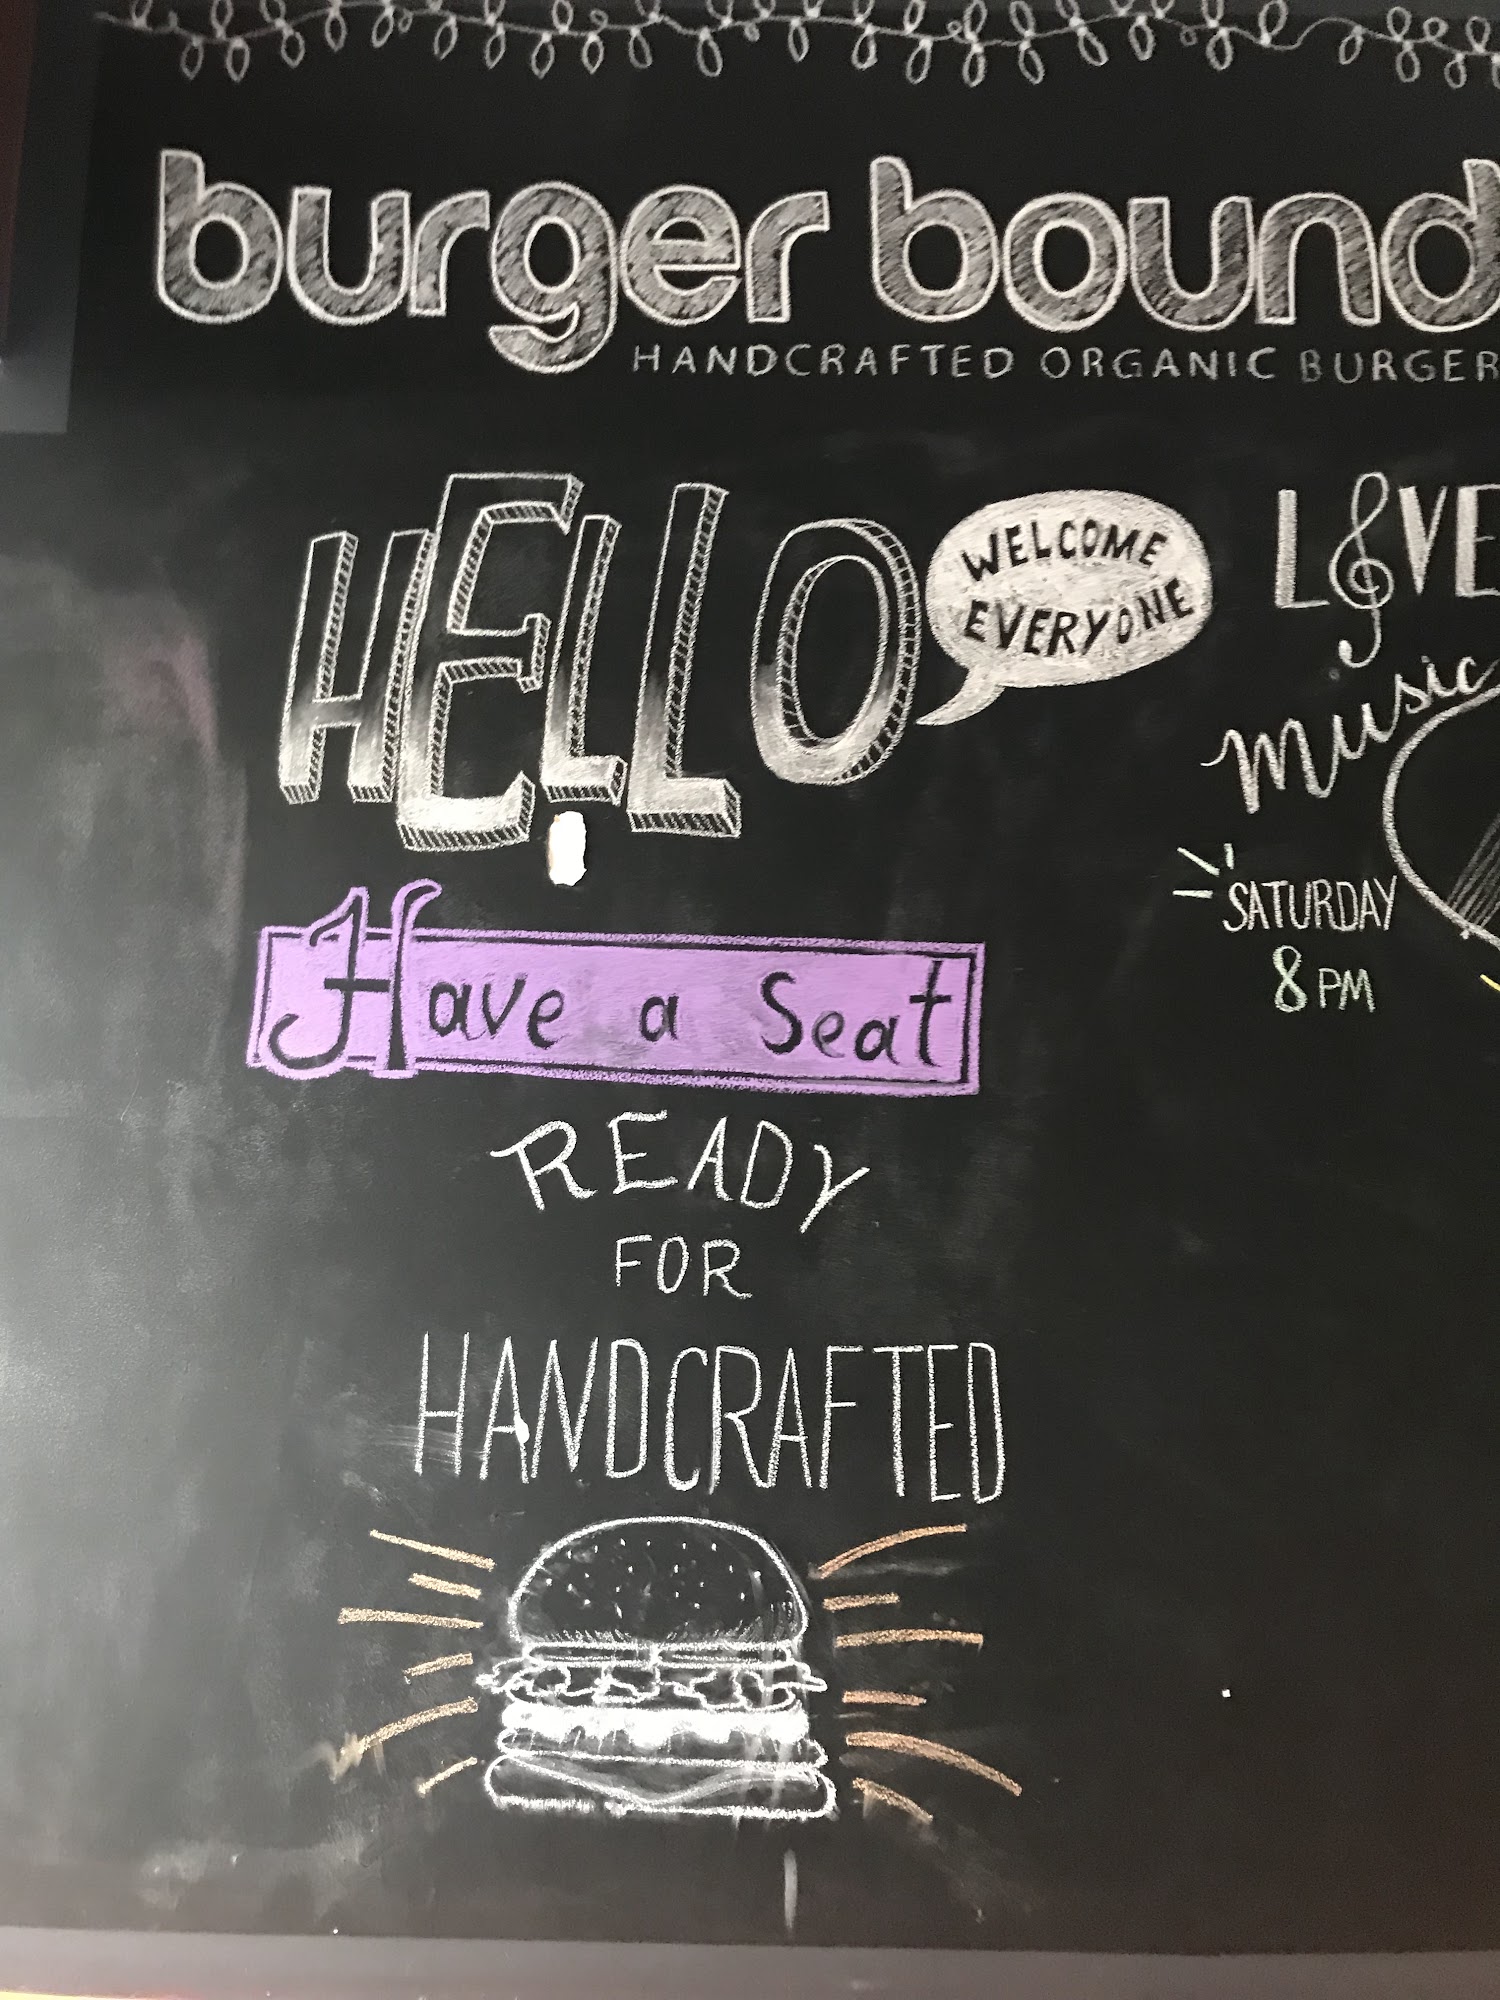 burger bound
HANDCRAFTED ORGANIC BURGER
HELLO
WELCOME
EVERYONE
Have a Seat
READY
FOR
HANDCRAFTED
LIVE
music
SATURDAY
8 PM